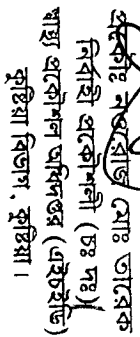 প্রকৌঃ মোঃ তারেক
নির্বাহী প্রকৌশলী (চঃ দাঃ)
স্বাস্থ্য প্রকৌশল অধিদপ্তর (এইচইডি)
কুষ্টিয়া বিভাগ, কুষ্টিয়া।